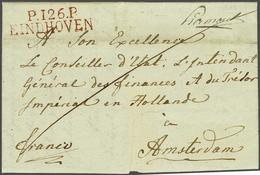 P.126.P.
EINDHOVEN
A Son Excellence
Le Conseiller d'Etat, L'Intendant
Général des Finances & du Trésor
Impérial en Hollande
à
franco
Amsterdam